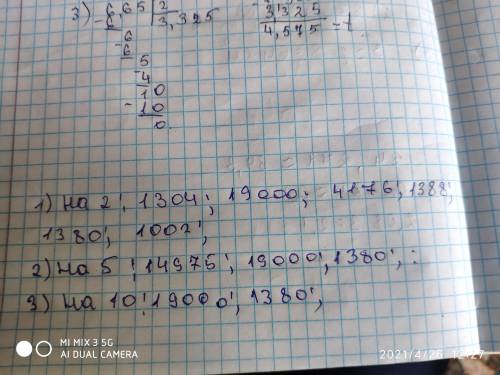 3) -6,65 | 2
6 3,325
-6
6
5
-4
10
-10
0
3,325
4,575 -t
1) на 2; 1304; 19000; 4176; 1388;
1380; 1002;
2) на 5; 14975; 19000; 1380; :
3) на 10; 19000; 1380;
MI MIX 3 5G
AI DUAL CAMERA
2021/4/26